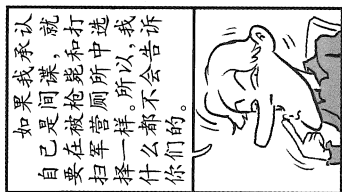 如果我承认
自己是间谍，就
要在被枪毙和打
扫军营厕所中选
择一样。所以，我
什么都不会告诉
你们的。